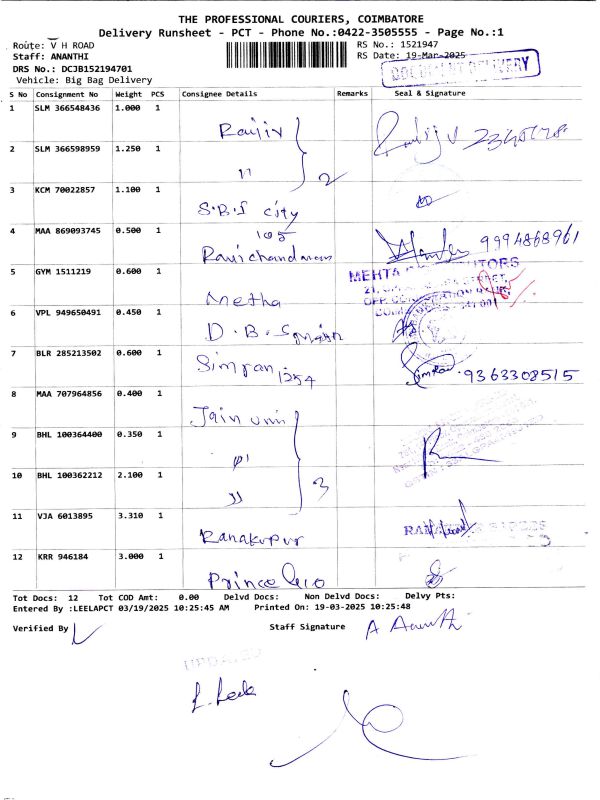 THE PROFESSIONAL COURIERS, COIMBATORE
Delivery Runsheet - PCT - Phone No.:0422-3505555 - Page No.:1
Route: V H ROAD RS No.: 1521947
Staff: ANANTHI RS Date: 19-Mar-2025
DRS No.: DCJB152194701
Vehicle: Big Bag Delivery
DOCUMENT DELIVERY
S No Consignment No Weight PCS Consignee Details Remarks Seal & Signature
1 SLM 366548436 1.000 1 Rajiv
2 SLM 366598959 1.250 1 " 2
3 KCM 70022857 1.100 1 S.B.S city
105
4 MAA 869093745 0.500 1 Ravichandran 9994868961
5 GYM 1511219 0.600 1 Metha MEHTA
6 VPL 949650491 0.450 1 D.B.
7 BLR 285213502 0.600 1 Simran 1254 Simran 9363308515
8 MAA 707964856 0.400 1 Jain
9 BHL 100364400 0.350 1 "
10 BHL 100362212 2.100 1 " 3
11 VJA 6013895 3.310 1 Ranakupur
12 KRR 946184 3.000 1 Prince
Tot Docs: 12 Tot COD Amt: 0.00 Delvd Docs: Non Delvd Docs: Delvy Pts:
Entered By :LEELAPCT 03/19/2025 10:25:45 AM Printed On: 19-03-2025 10:25:48
Verified By Staff Signature
UPDATED